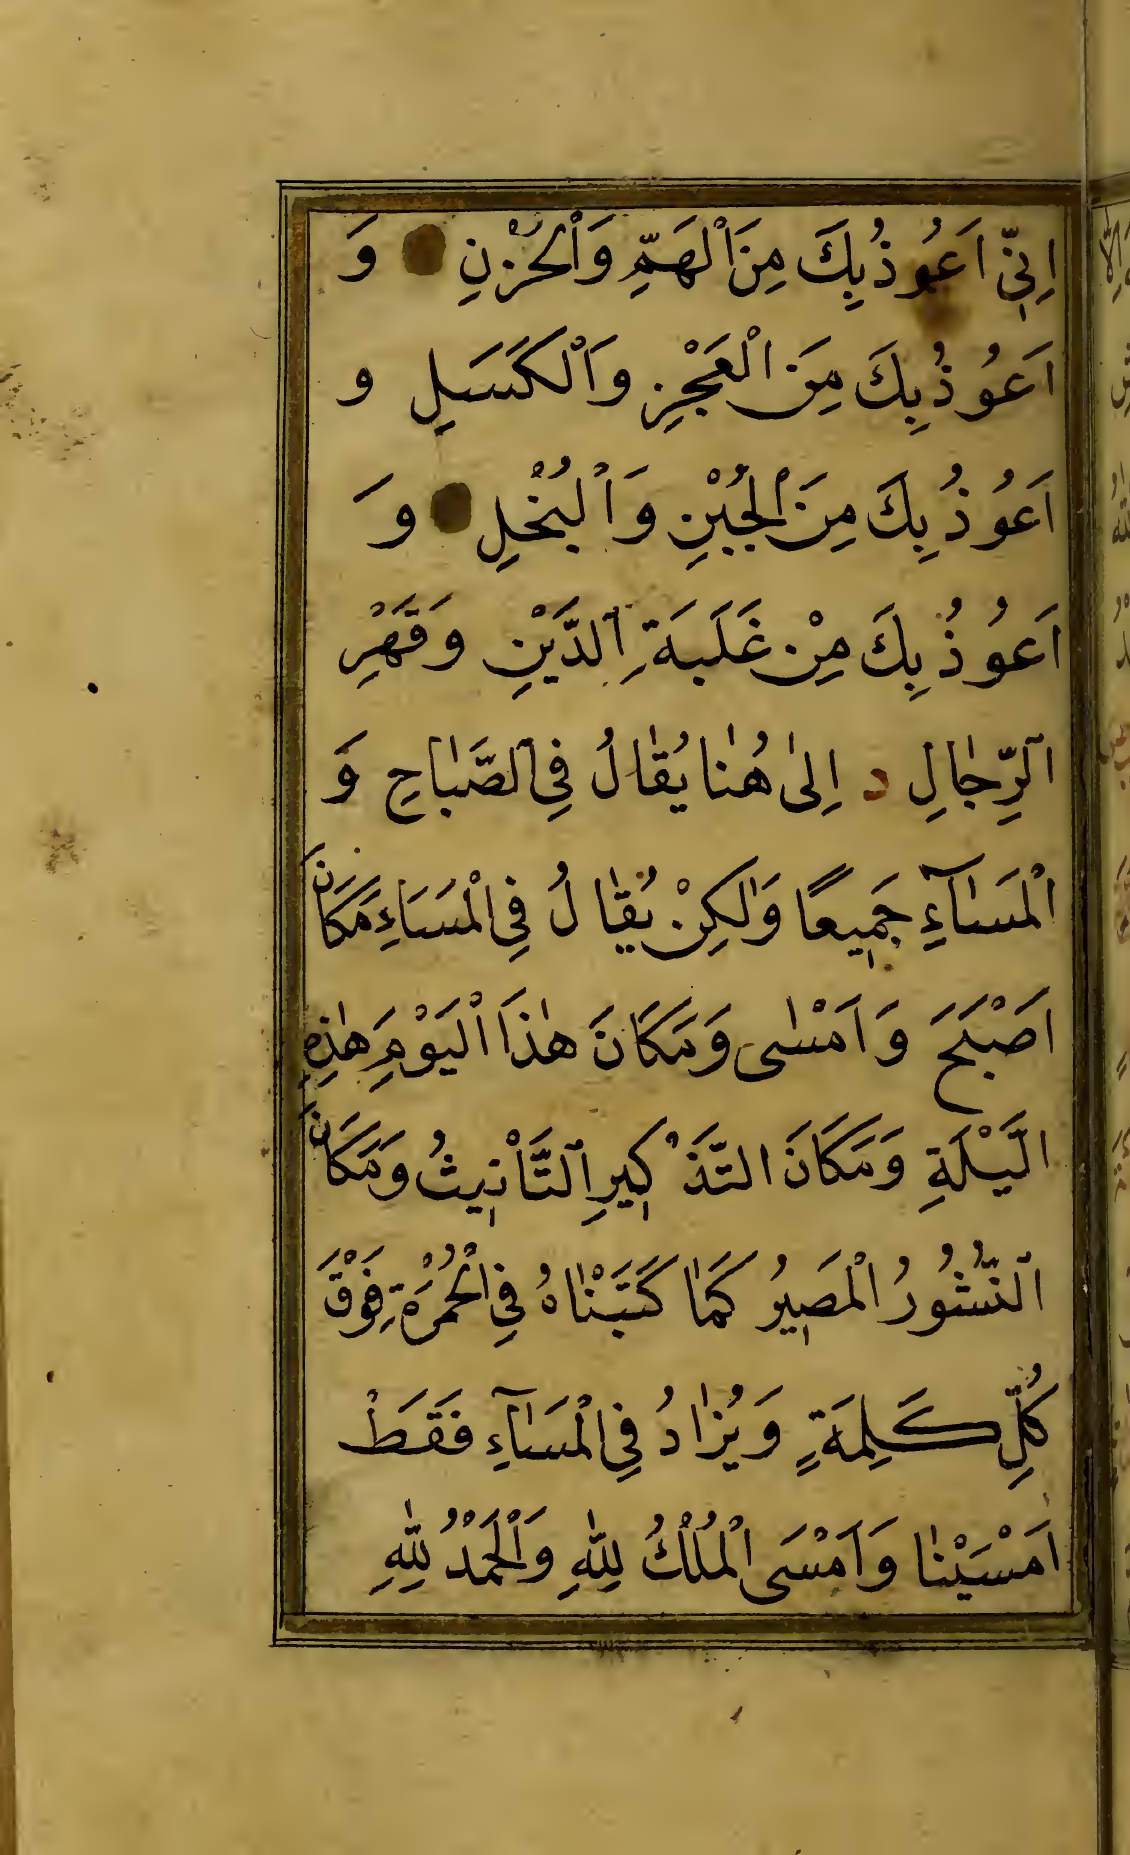 اِنّٖي اَعُوذُ بِكَ مِنَ الْهَمِّ وَالْحُزْنِ وَ
اَعُوذُ بِكَ مِنَ الْعَجْزِ وَالْكَسَلِ و
اَعُوذُ بِكَ مِنَ الْجُبْنِ وَالْبُخْلِ وَ
اَعُوذُ بِكَ مِنْ غَلَبَةِ الدَّيْنِ وَقَهْرِ
الرِّجٰالِ د اِلىٰ هُنٰا يُقٰالُ فِي الصَّبٰاحِ وَ
الْمَسٰآءِ جَمٖيعًا وَلٰكِنْ يُقٰالُ فِي الْمَسَاءِ مَكَانَ
اَصْبَحَ وَاَمْسٰى وَمَكَانَ هٰذَا الْيَوْمِ هٰذِهِ
الَّيْلَةِ وَمَكَانَ التَّذْكٖيرِ التَّأْنٖيثُ وَمَكَانَ
النُّشُورُ الْمَصٖيرُ كَمٰا كَتَبْنٰاهُ فِي الْحُمْرَةِ فَوْقَ
كُلِّ كَلِمَةٍ وَيُزٰادُ فِي الْمَسٰآءِ فَقَطْ
اَمْسَيْنٰا وَاَمْسَى الْمُلْكُ لِلّٰهِ وَالْحَمْدُ لِلّٰهِ